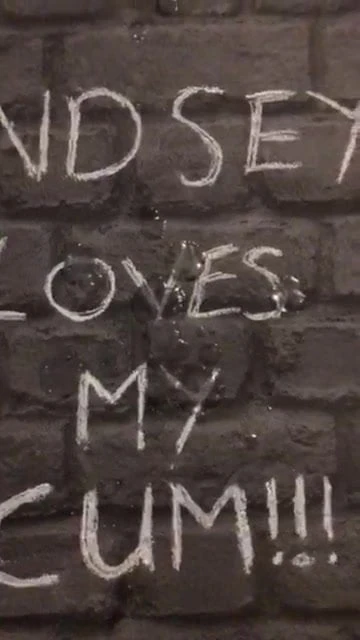 NDSEY
LOVES
MY
CUM!!!